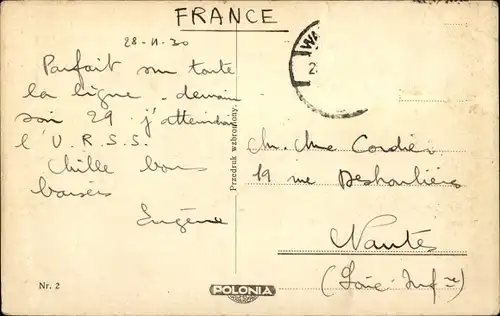 FRANCE
28-11-30
Parfait sur toute
la ligne. demain
soir 29 j'atteindrai
l'U.R.S.S.
Mille bons
baisers
Eugène
WA
2
Przedruk wzbroniony.
Mme Cordier
19 rue Deshoulières
Nantes
(Loire-Infre)
Nr. 2
POLONIA